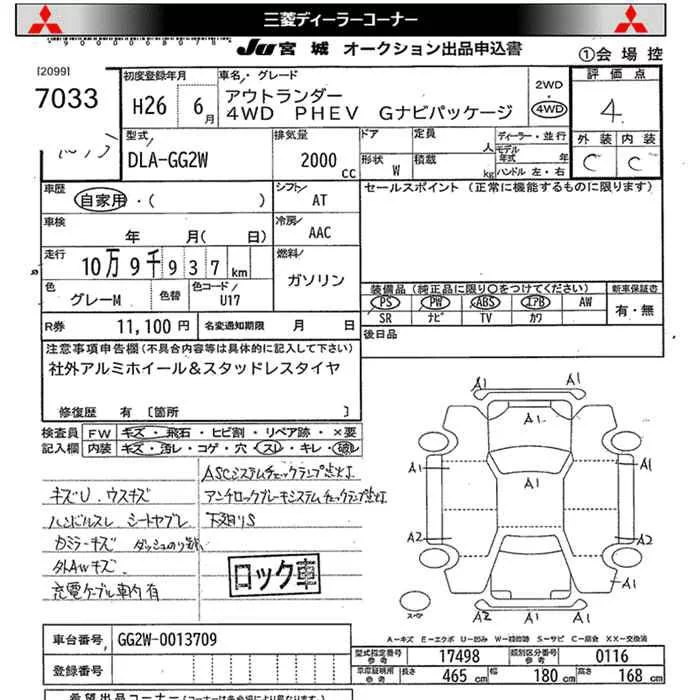 三菱ディーラーコーナー
JU 宮城 オークション出品申込書
①会場控
[2099]
7033
初度登録年月
H26 6月
車名・グレード
アウトランダー
4WD PHEV Gナビパッケージ
2WD
・
4WD
評価点
4.
外装 内装
C C
型式
DLA-GG2W
排気量
2000 cc
ドア 定員 人
形状 W 積載 kg
ディーラー・並行
モデル年式 年
ハンドル 左・右
車歴
自家用・( )
シフト
AT
セールスポイント (正常に機能するものに限ります)
車検
年 月( 日)
冷房
AAC
走行
10万9千937km
燃料
ガソリン
色
グレーM
色替
色コード
U17
装備品(純正品に限り○をつけてください)
PS PW ABS エアB AW
SR ナビ TV カワ
新車保証書
有・無
R券 11,100円 名変通知期限 月 日
後日品
注意事項申告欄(不具合内容等は具体的に記入して下さい)
社外アルミホイール&スタッドレスタイヤ
修復歴 有 [箇所 ]
検査員記入欄
FW キズ・飛石・ヒビ割・リペア跡・×要
内装 キズ・汚レ・コゲ・穴・スレ・キレ・破レ
ASCシステムチェックランプ点灯
キズU、ウスキズ アンチロックブレーキシステムチェックランプ点灯
ハンドルスレ シートヤブレ 下廻りS
カミラーキズ
外AWキズ
充電ケーブル車内有
ロック車
A1 A1
A1
A1 A1 A1
A1
A2 A2
A1
スペア
A2 A1 A1
A-キズ E-エクボ U-凹み W-補修跡 S-サビ C-腐食 XX-交換済
車台番号 GG2W-0013709
登録番号
型式指定番号 参考 17498 類別区分番号 参考 0116
車庫証明用 参考 長さ 465cm 幅 180cm 高さ 168cm
希望出品コーナー